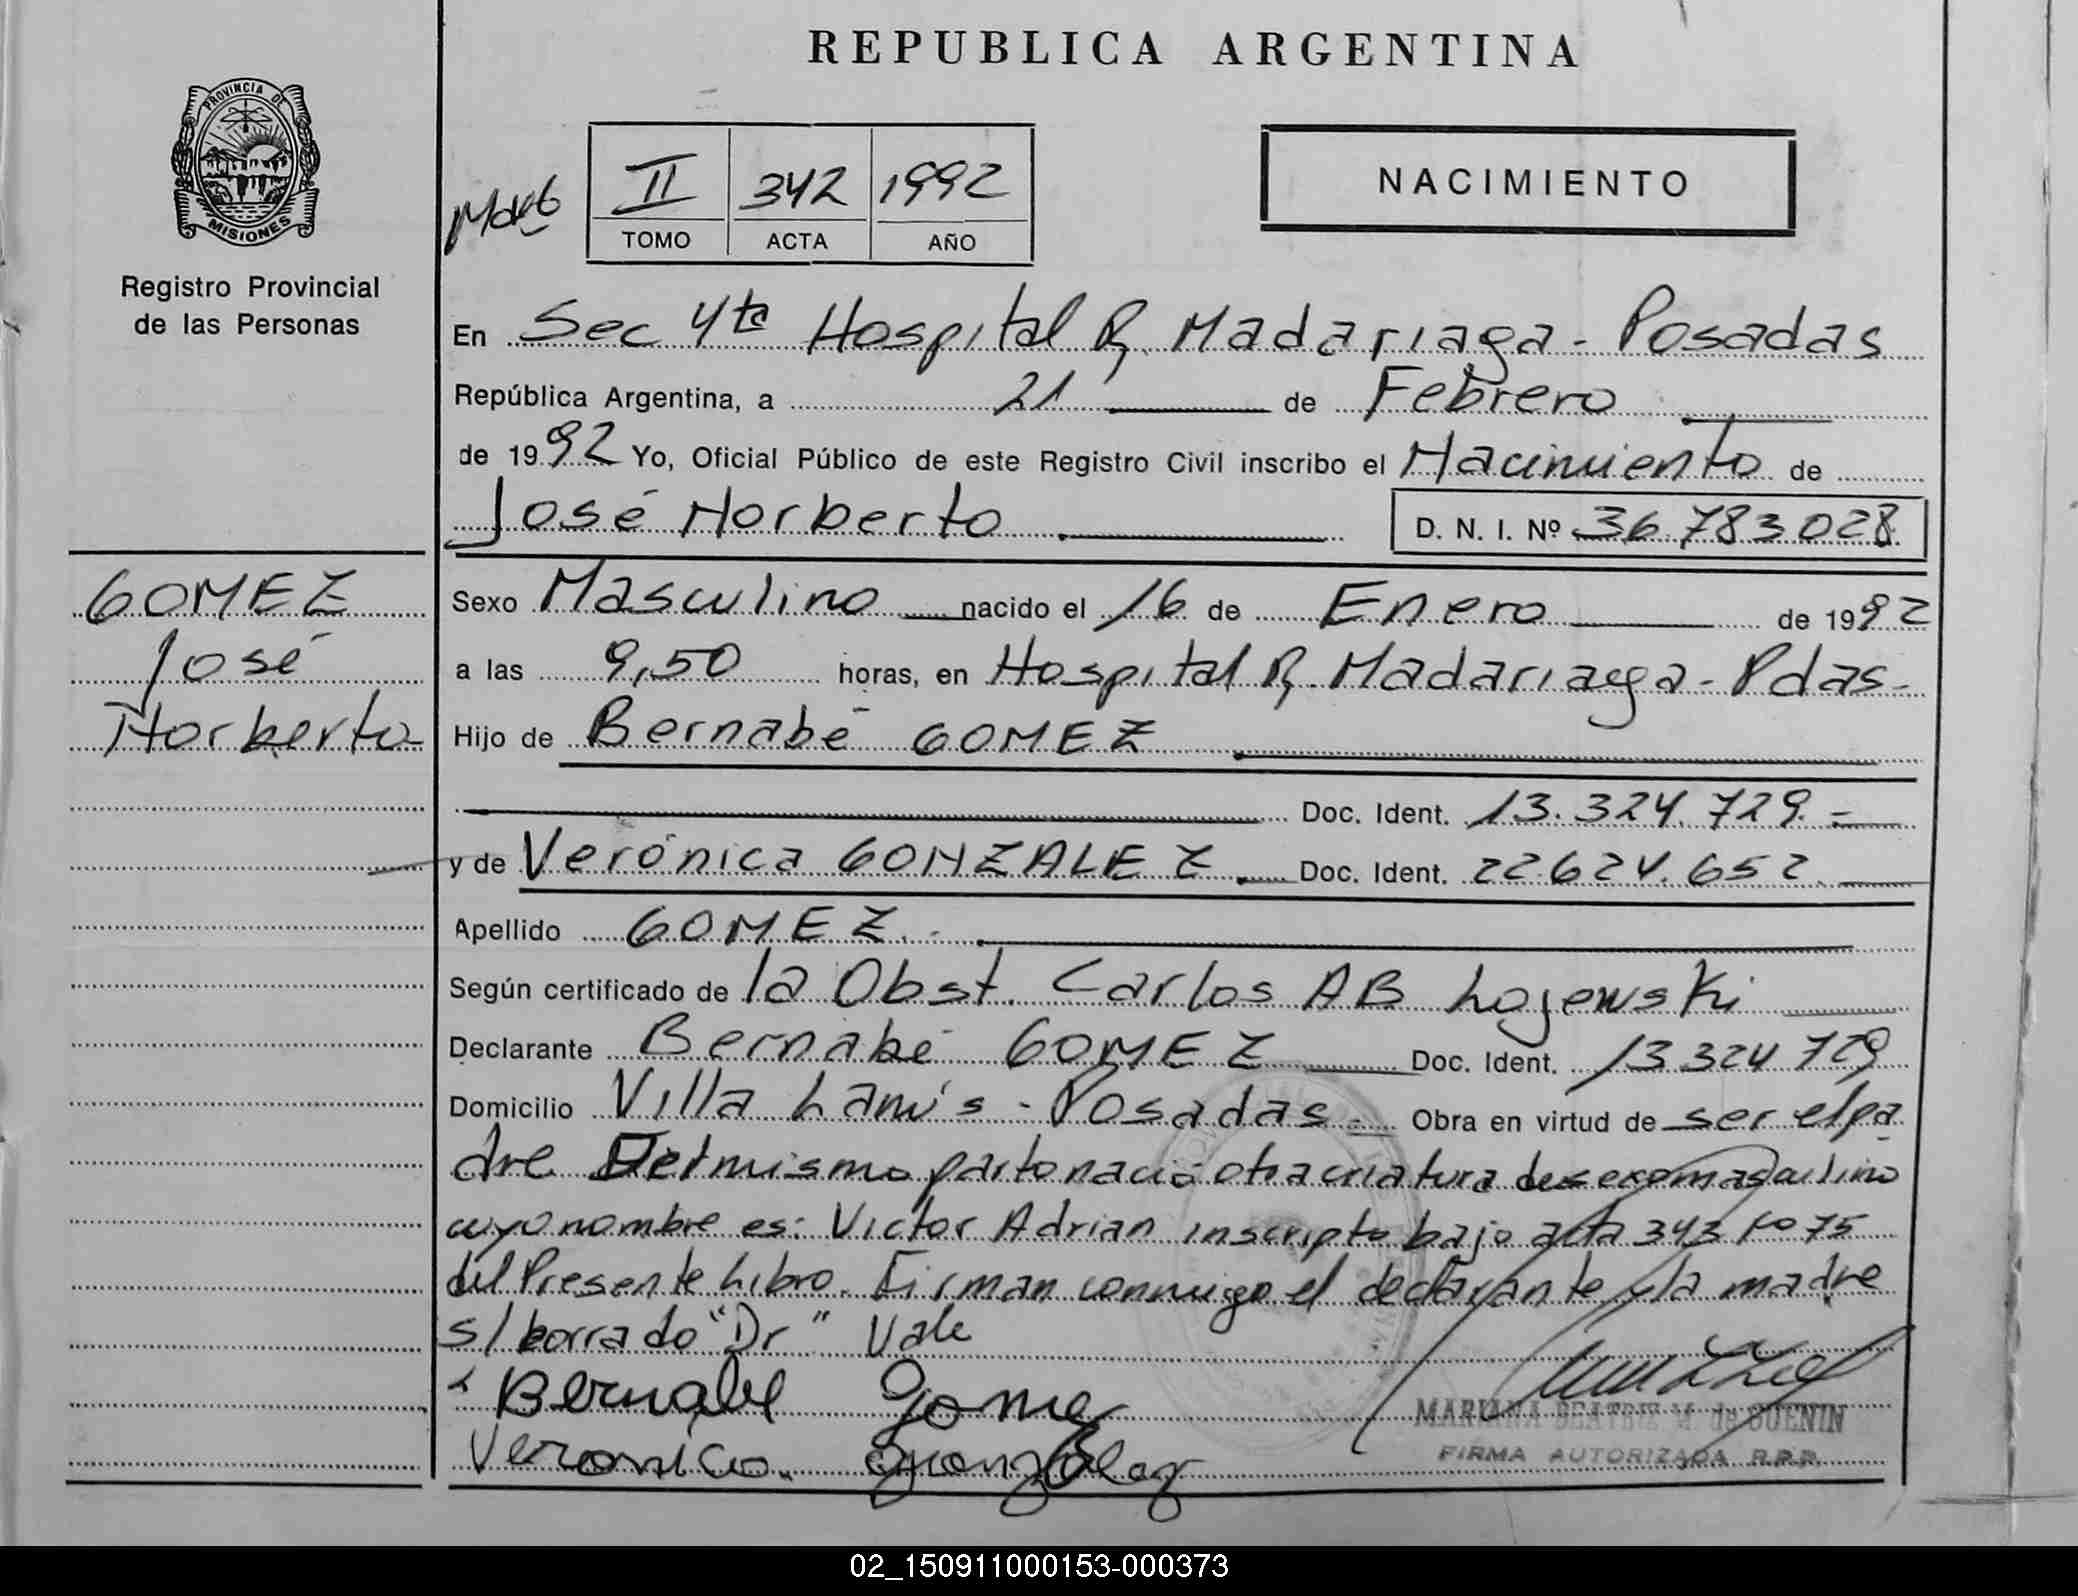 REPUBLICA ARGENTINA
PROVINCIA DE
MISIONES
Registro Provincial
de las Personas
II 342 1992
TOMO ACTA AÑO
NACIMIENTO
En Sec 4ta Hospital R. Madariaga - Posadas
República Argentina, a 21 de Febrero
de 1992 Yo, Oficial Público de este Registro Civil inscribo el Nacimiento de
José Norberto D. N. I. Nº 36.783028
GOMEZ
José
Norberto
Sexo Masculino nacido el 16 de Enero de 1992
a las 9,50 horas, en Hospital R. Madariaga - Pdas-
Hijo de Bernabé GOMEZ
Doc. Ident. 13.324.729.-
y de Verónica GONZALEZ. Doc. Ident. 22.624.652.
Apellido GOMEZ.-
Según certificado de la Obst. Carlos AB Lojewski
Declarante Bernabé GOMEZ Doc. Ident. 13 324 729
Domicilio Villa Lanús - Posadas - Obra en virtud de ser el pa
dre Del mismo parto nació otra criatura de sexo masculino
cuyo nombre es: Victor Adrian inscripto bajo acta 343 Fº 75
del Presente Libro. Firman conmigo el declarante y la madre
s/ borrado "Dr" Vale
Bernabe Gomez
Veronica Gonzalez
MARIANA BEATRIZ M. de GUENIN
FIRMA AUTORIZADA R.P.P.
02_150911000153-000373